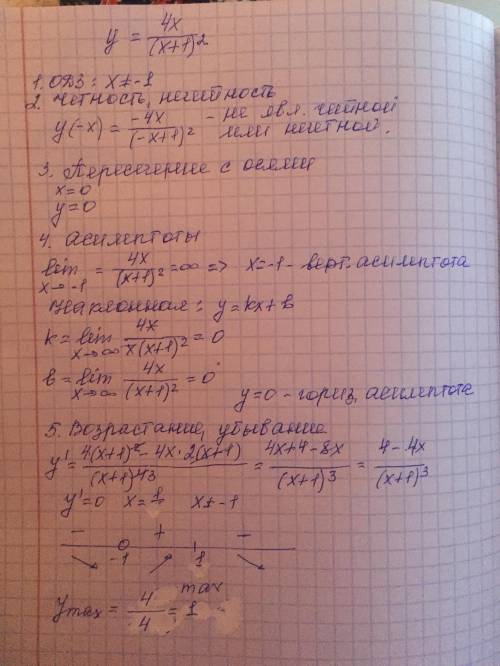 y = 4x/(x+1)²
1. ОДЗ: x ≠ -1
2. Четность, нечетность
y(-x) = -4x/(-x+1)² - не явл. четной
или нечетной.
3. Пересечение с осями
x=0
y=0
4. Асимптоты
lim x→-1 = 4x/(x+1)² = ∞ => x=-1 - верт. асимптота
Наклонная: y=kx+b
k = lim x→∞ 4x/x(x+1)² = 0
b = lim x→∞ 4x/(x+1)² = 0
y=0 - гориз. асимптота
5. Возрастание, убывание
y' = 4(x+1)² - 4x·2(x+1)/(x+1)⁴³ = 4x+4-8x/(x+1)³ = 4-4x/(x+1)³
y'=0 x=1 x≠-1
- + -
-1 1
max
ymax = 4/4 = 1